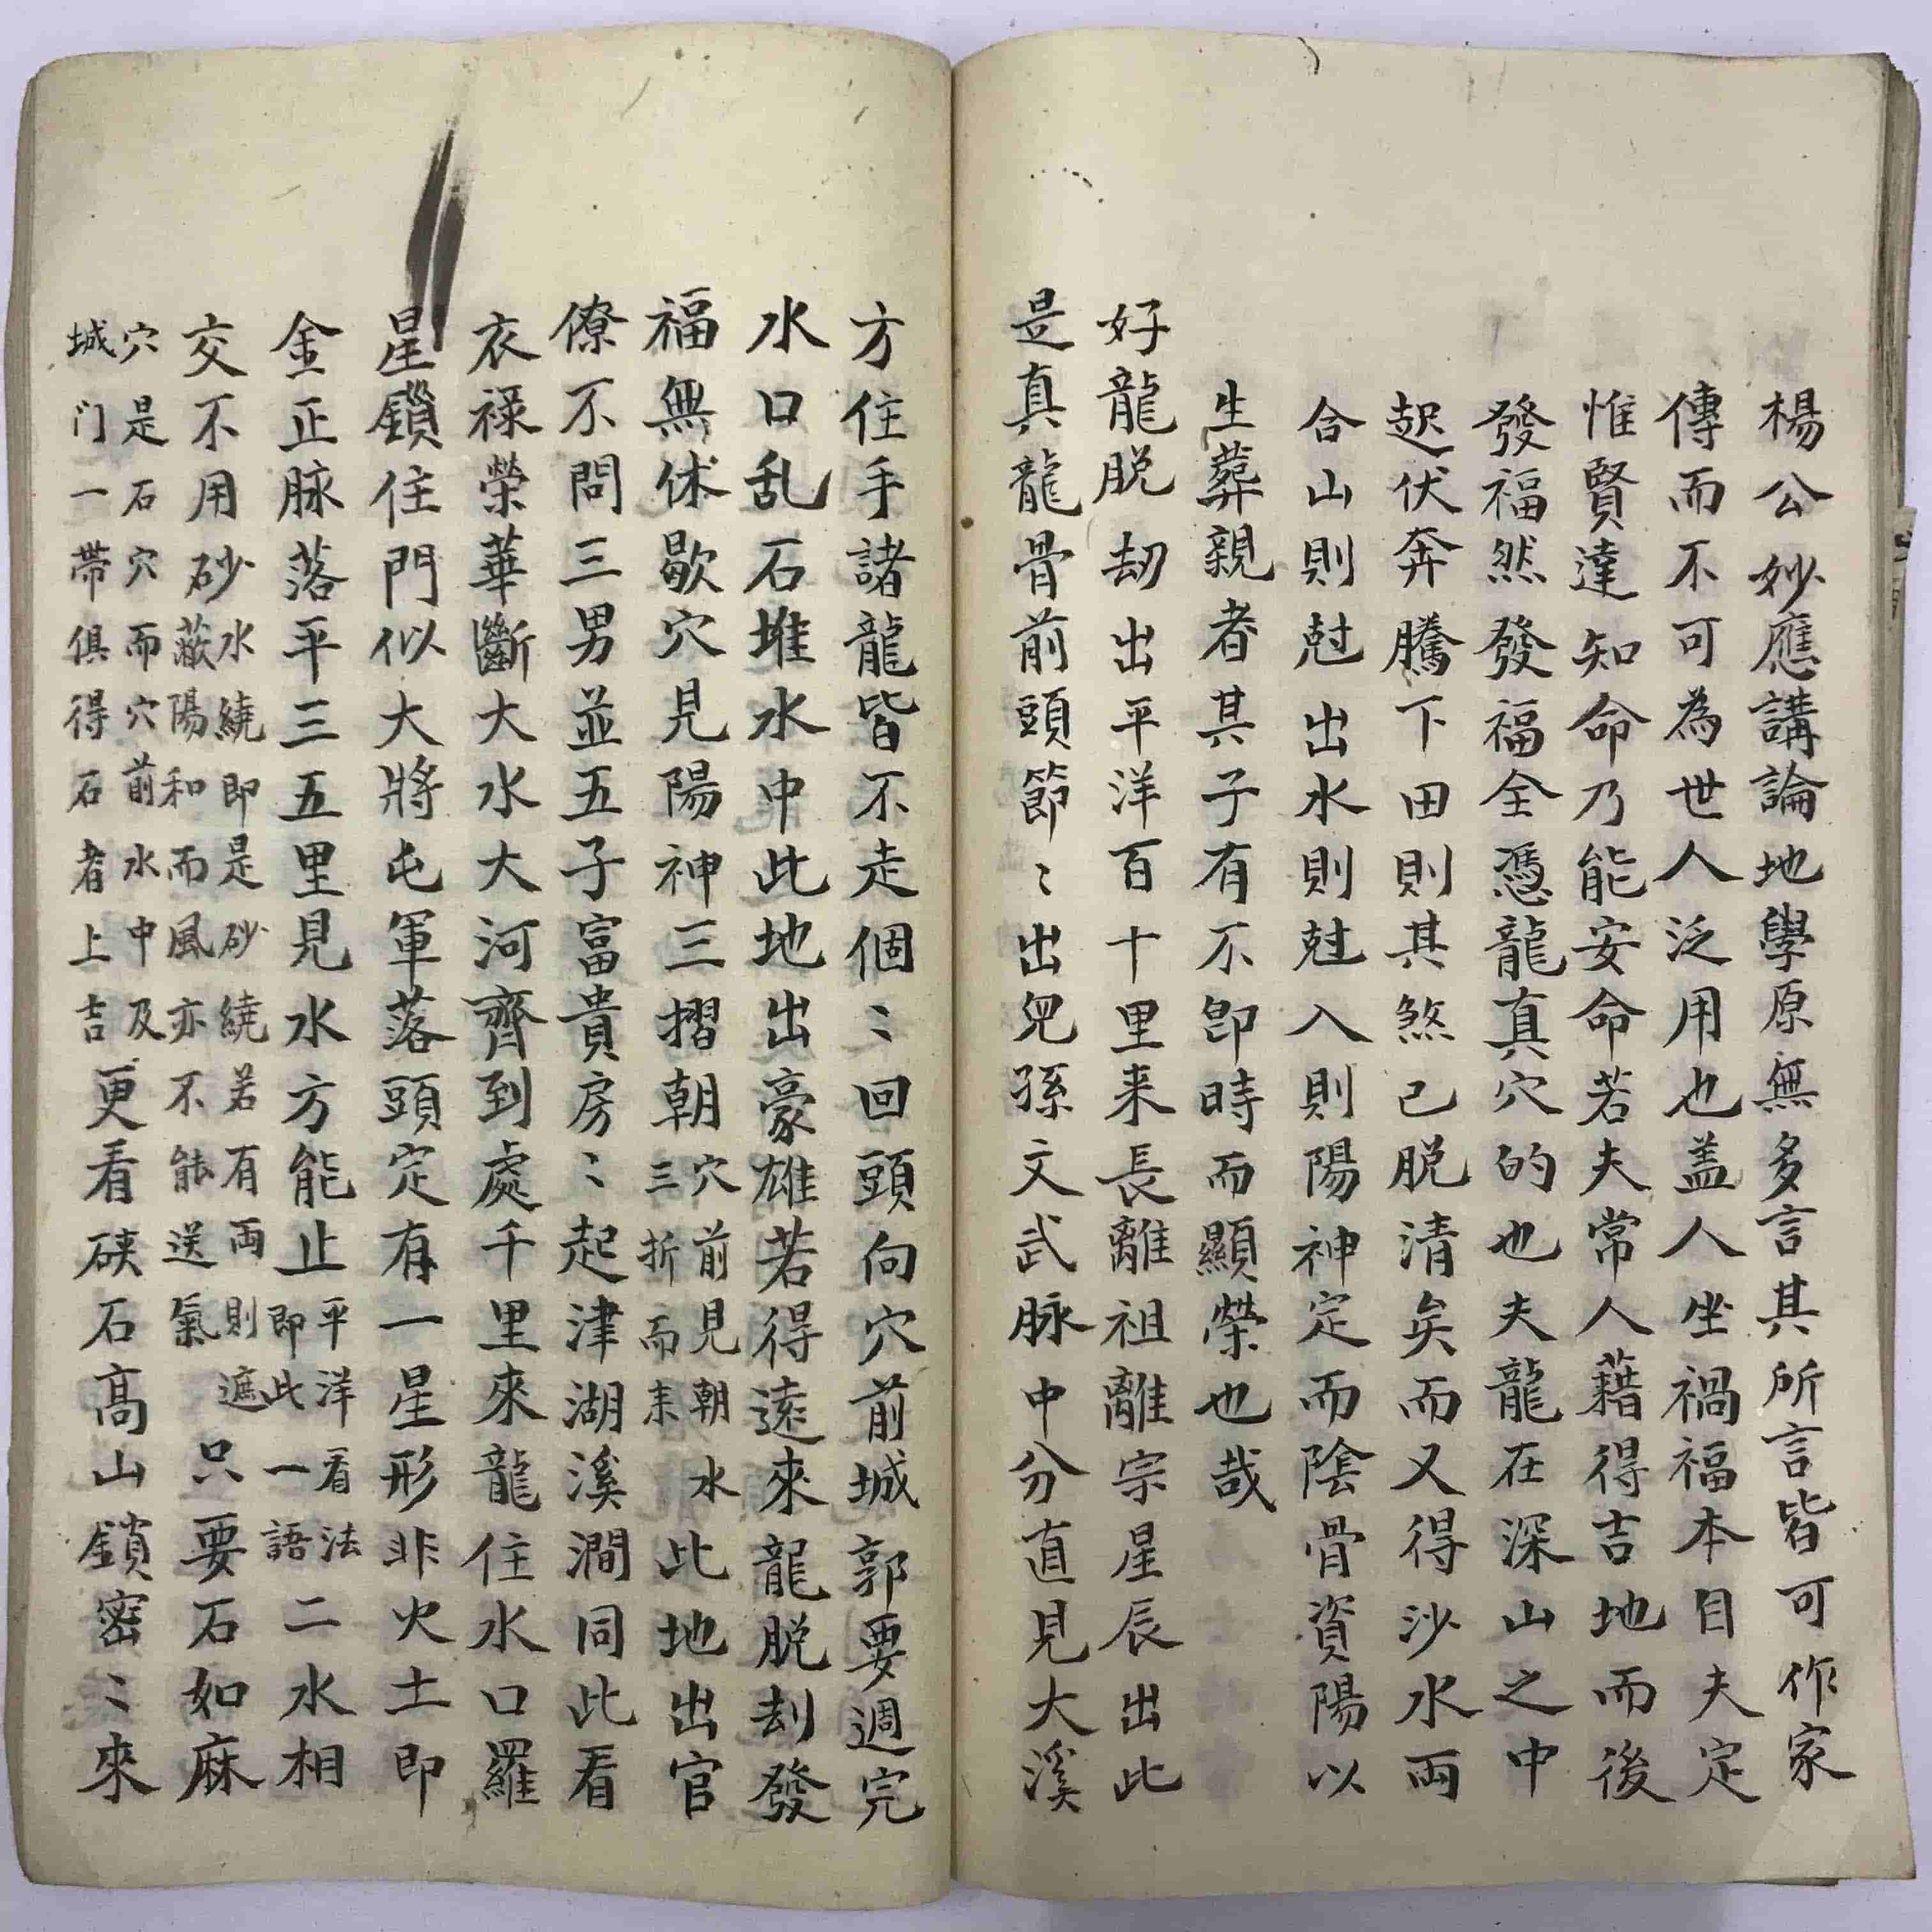 楊公妙應講論地學原無多言其所言皆可作家
傳而不可為世人泛用也盖人坐禍福本目夫定
惟賢達知命乃能安命若夫常人藉得吉地而後
發福然發福全憑龍真穴的也夫龍在深山之中
起伏奔騰下田則其煞已脱清矣而又得沙水両
合山則尅出水則尅入則陽神定而陰骨資陽以
生葬親者其子有不即時而顯榮也哉
好龍脱刼出平洋百十里来長離祖離宗星辰出此
是真龍骨前頭節〻出兒孫文武脉中分直見大溪
方住手諸龍皆不走個〻回頭向穴前城郭要週完
水口乱石堆水中此地出豪雄若得遠來龍脱刦發
福無休歇穴見陽神三摺朝穴前見朝水三折而来此地出官
僚不問三男並五子富貴房〻起津湖溪澗同此看
衣祿榮華斷大水大河齊到處千里來龍住水口羅
星鎖住門似大將屯軍落頭定有一星形非火土即
金正脉落平三五里見水方能止平洋看法即此一語二水相
交不用砂水繞即是砂繞若有両則遮蔽陽和而風亦不能送氣只要石如麻
穴是石穴而穴前水中及城门一帶俱得石者上吉更看硤石高山鎖密〻來